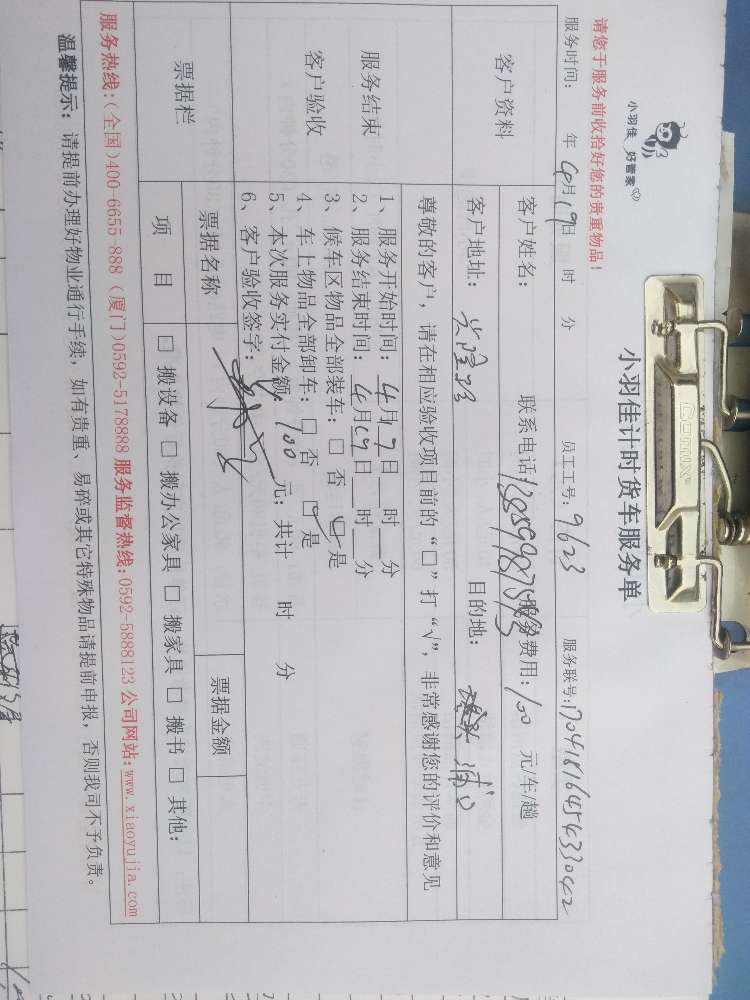 小羽佳 好管家
小羽佳计时货车服务单
请您于服务前收拾好您的贵重物品！
服务时间： 年 4月19日 时 分 员工工号：9623 服务联号：1704181645433042
客户资料
客户姓名： 联系电话： 服务费用：100 元/车/趟
客户地址： 目的地：
尊敬的客户，请在相应验收项目前的“□”打“√”，非常感谢您的评价和意见
服务结束
客户验收
1、服务开始时间：4月19日 时 分
2、服务结束时间：4月19日 时 分
3、候车区物品全部装车：□ 否 □ 是
4、车上物品全部卸车：□ 否 □ 是
5、本次服务实付金额：100 元；共计 时 分
6、客户验收签字：
票据栏
票据名称 票据金额
项 目 □ 搬设备 □ 搬办公家具 □ 搬家具 □ 搬书 □ 其他：
服务热线：(全国)400-6655-888 (厦门)0592-5178888 服务监督热线：0592-5888123 公司网站：www.xiaoyujia.com
温馨提示：请提前办理好物业通行手续，如有贵重、易碎或其它特殊物品请提前申报，否则我司不予负责。